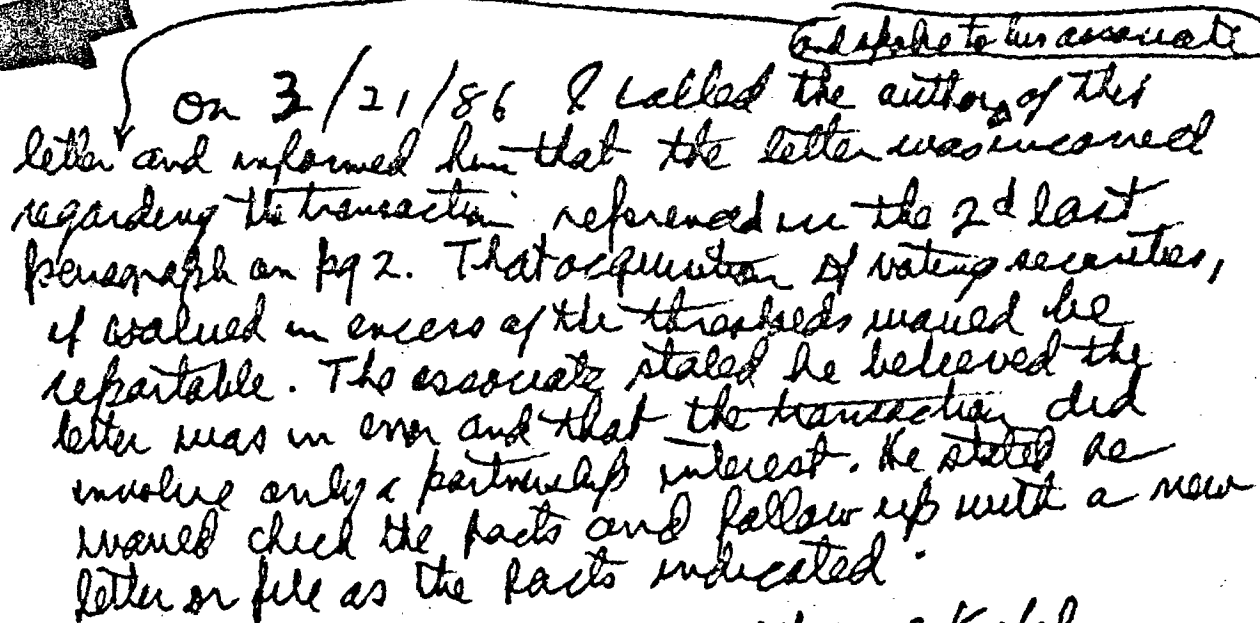 and spoke to his associate
On 3/21/86 I called the author of this
letter and informed him that the letter was incorrect
regarding the transaction referenced in the 2d last
paragraph on pg 2. That acquisition of voting securities,
if valued in excess of the thresholds would be
reportable. The associate stated he believed the
letter was in error and that the transaction did
involve only a partnership interest. He stated he
would check the facts and follow up with a new
letter or file as the facts indicated.